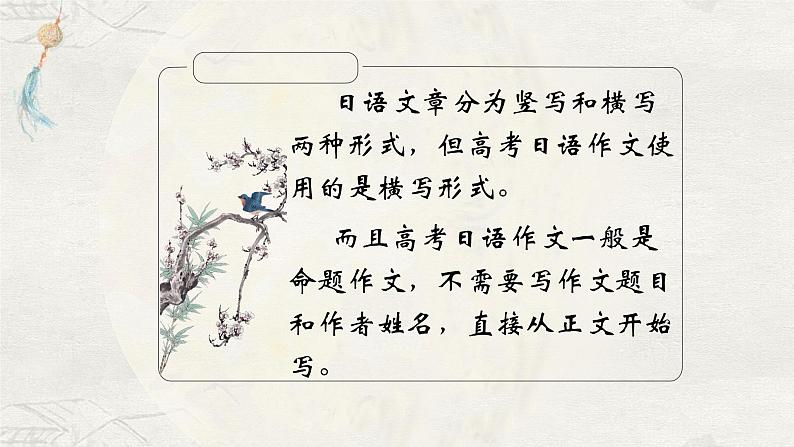 日语文章分为竖写和横写
两种形式，但高考日语作文使
用的是横写形式。
而且高考日语作文一般是
命题作文，不需要写作文题目
和作者姓名，直接从正文开始
写。